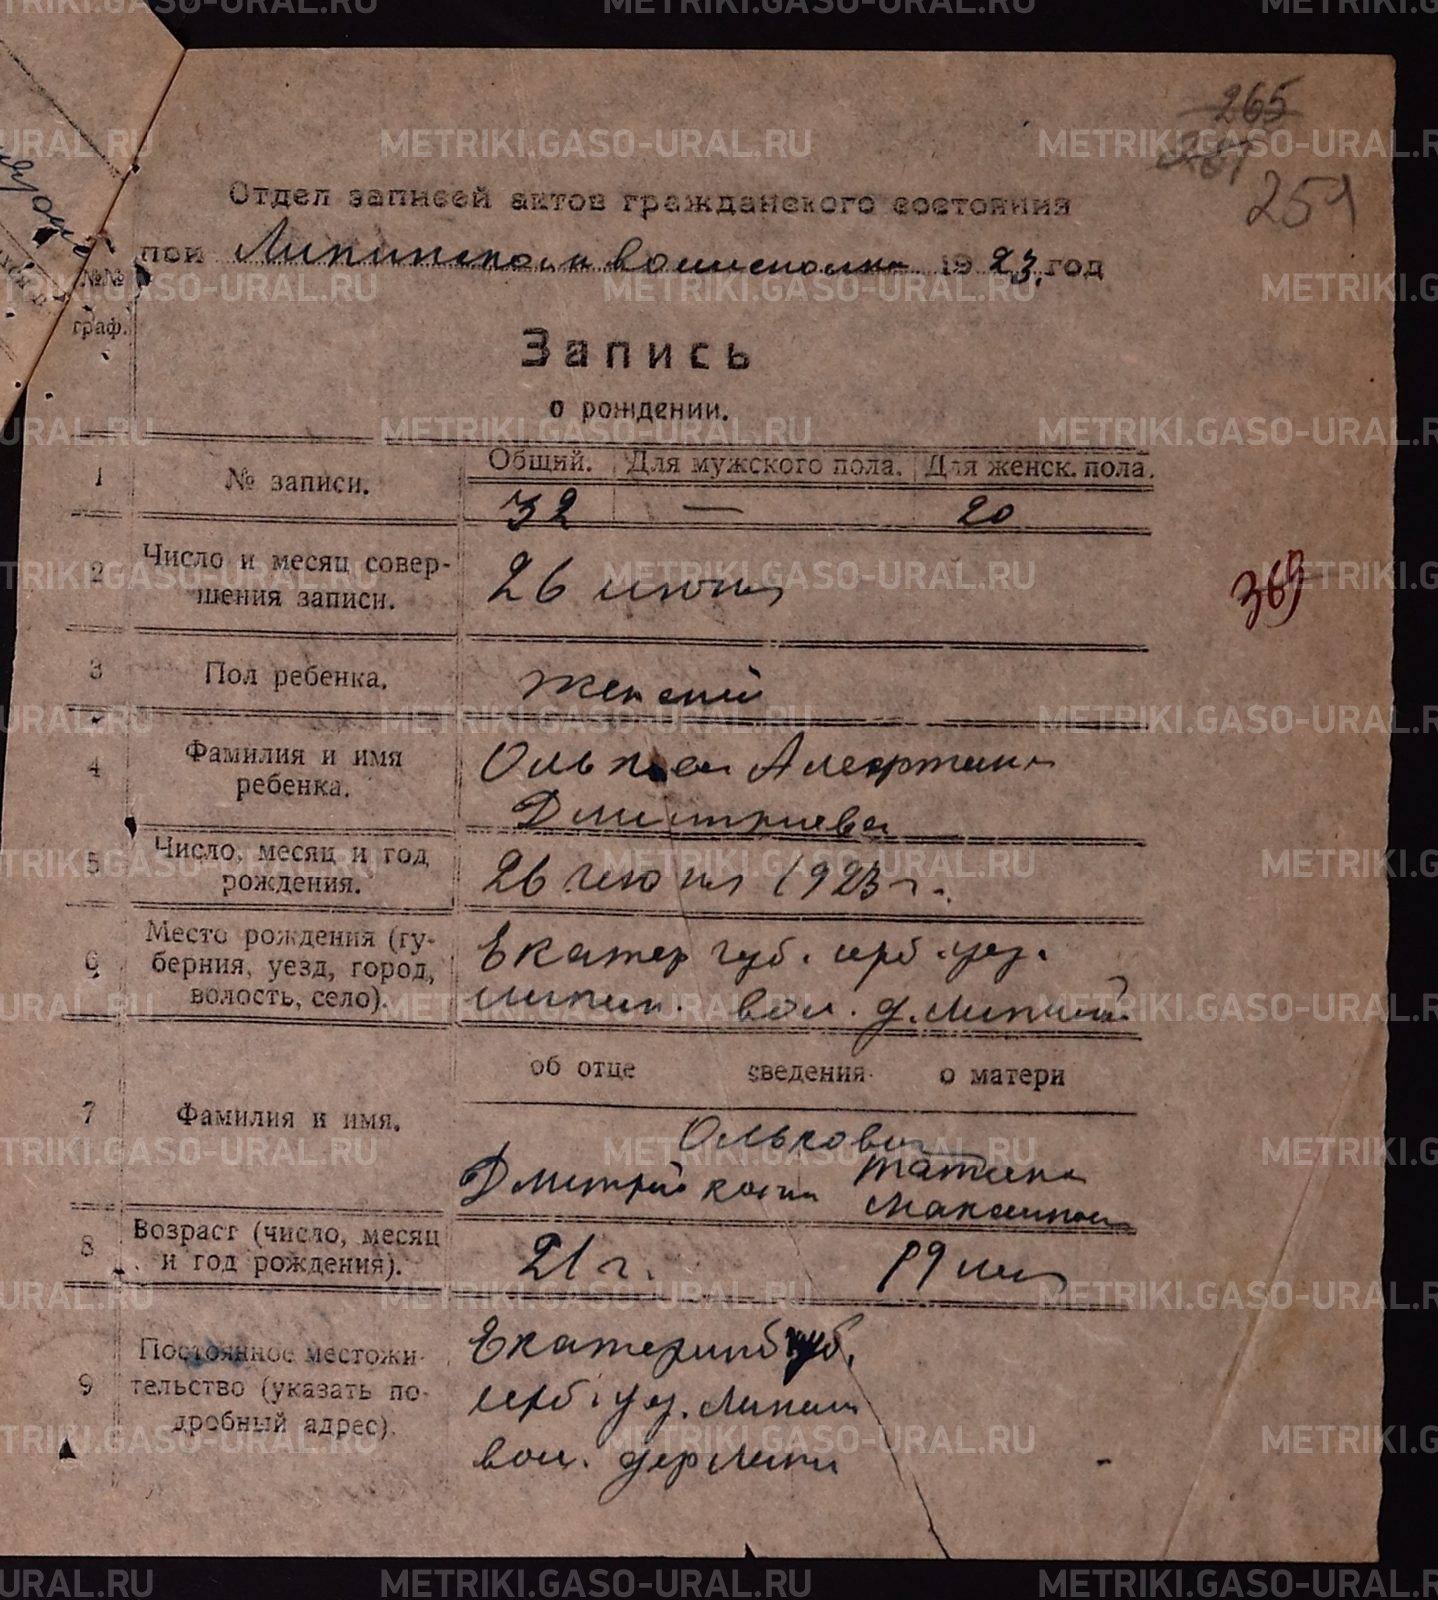 265
267
259
Отдел записей актов гражданского состояния
при Липинском волисполк 1923 год
№№ граф.
Запись
о рождении.
1 № записи. Общий. Для мужского пола. Для женск. пола.
32 — 20
2 Число и месяц совершения записи. 26 июня
369
3 Пол ребенка. женский
4 Фамилия и имя ребенка.
Алефтина
Дмитриева
5 Число, месяц и год рождения. 26 июня 1923 г.
6 Место рождения (губерния, уезд, город, волость, село).
Екатер губ. ирб. уез.
липин. вол. д.
об отце сведения о матери
7 Фамилия и имя.
Ольковы
Дмитрий Татьяна
8 Возраст (число, месяц и год рождения). 21 г. 19 лет
9 Постоянное местожительство (указать подробный адрес).
Екатеринб губ.
ирб. уез. Липин
вол. дер Липки
METRIKI.GASO-URAL.RU